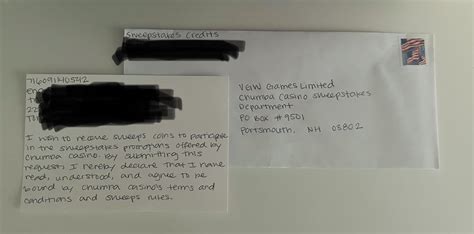 Sweepstakes Credits
VGW Games Limited
Chumba Casino Sweepstakes
Department
PO Box #9501
Portsmouth, NH 03802
I wish to receive sweeps coins to participate
in the sweepstakes promotions offered by
Chumba Casino. By submitting this
request, I hereby declare that I have
read, understood, and agree to be
bound by Chumba Casino's terms and
conditions and sweeps rules.